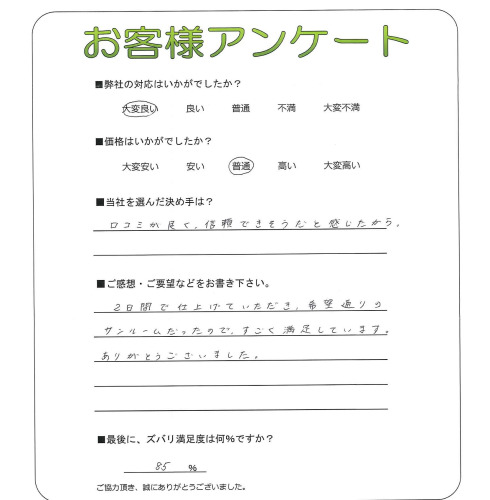 お客様アンケート
■弊社の対応はいかがでしたか？
大変良い 良い 普通 不満 大変不満
■価格はいかがでしたか？
大変安い 安い 普通 高い 大変高い
■当社を選んだ決め手は？
口コミが良く、信頼できそうだと感じたから。
■ご感想・ご要望などをお書き下さい。
2日間で仕上げていただき、希望通りの
サンルームだったので、すごく満足しています。
ありがとうございました。
■最後に、ズバリ満足度は何%ですか？
85 %
ご協力頂き、誠にありがとうございました。